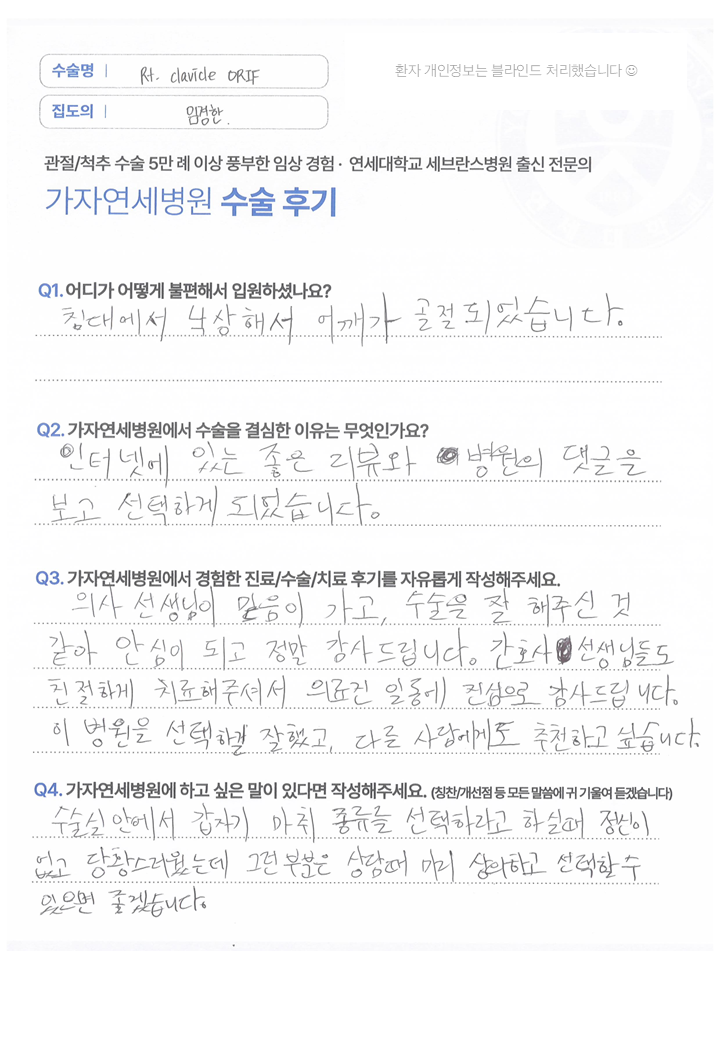 수술명 | Rt. clavicle ORIF
환자 개인정보는 블라인드 처리했습니다 ☺
집도의 | 임경한.
관절/척추 수술 5만 례 이상 풍부한 임상 경험 · 연세대학교 세브란스병원 출신 전문의
가자연세병원 수술 후기
Q1. 어디가 어떻게 불편해서 입원하셨나요?
침대에서 낙상해서 어깨가 골절되었습니다.
Q2. 가자연세병원에서 수술을 결심한 이유는 무엇인가요?
인터넷에 있는 좋은 리뷰와 병원의 댓글을
보고 선택하게 되었습니다.
Q3. 가자연세병원에서 경험한 진료/수술/치료 후기를 자유롭게 작성해주세요.
의사 선생님이 믿음이 가고, 수술을 잘 해주신 것
같아 안심이 되고 정말 감사드립니다. 간호사 선생님들도
친절하게 치료해주셔서 의료진 일동에 진심으로 감사드립니다.
이 병원을 선택하길 잘했고, 다른 사람에게도 추천하고 싶습니다.
Q4. 가자연세병원에 하고 싶은 말이 있다면 작성해주세요. (칭찬/개선점 등 모든 말씀에 귀 기울여 듣겠습니다)
수술실 안에서 갑자기 마취 종류를 선택하라고 하실때 정신이
없고 당황스러웠는데 그런 부분은 상담때 미리 상의하고 선택할 수
있으면 좋겠습니다.